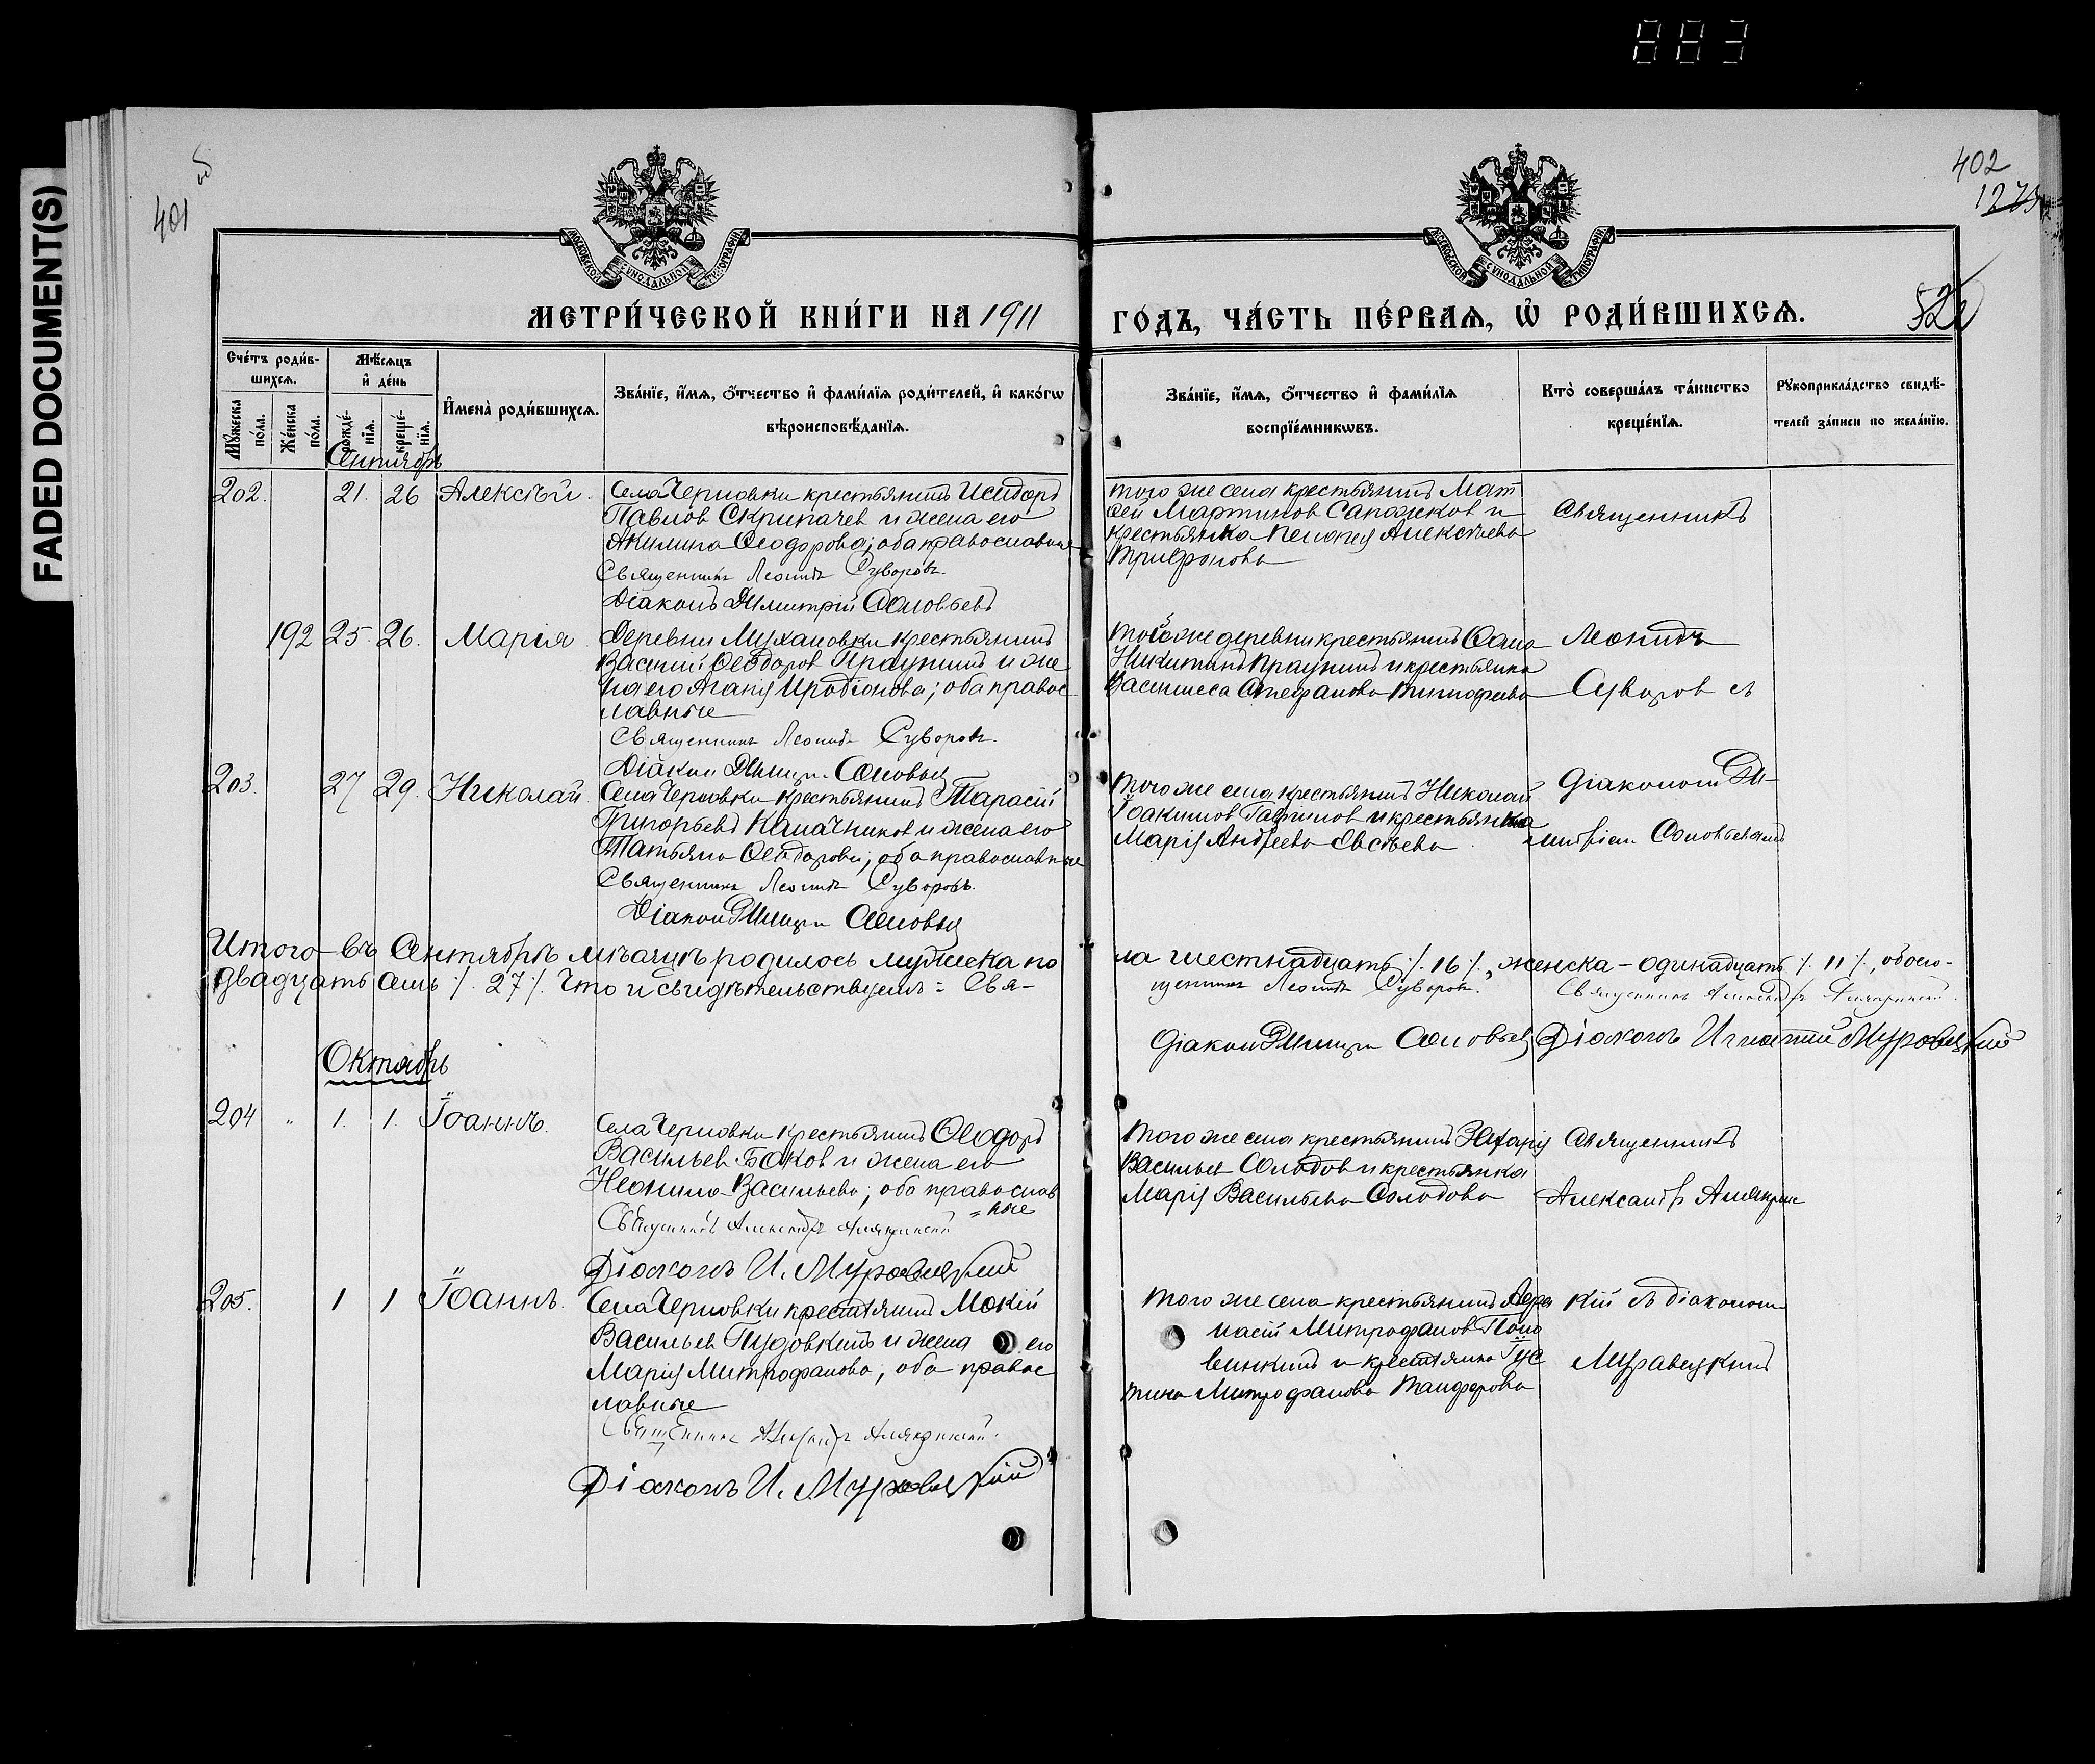 883
FADED DOCUMENT(S)
401 об
402
1273
МОСКОВСКОЙ СУНОДАЛЬНОЙ ТИПОГРАФІИ
МОСКОВСКОЙ СУНОДАЛЬНОЙ ТИПОГРАФІИ
МЕТРИ́ЧЕСКОЙ КНИ́ГИ НА 1911
ГО́ДЪ, ЧА́СТЬ ПЕ́РВАѦ, Ѡ҆ РОДИ́ВШИХСѦ.
Сче́тъ роди́в-
шихсѧ.
Мѣ́сѧцъ
и҆ де́нь
Мꙋ́жеска по́ла.
Же́нска по́ла.
рожде́-нїѧ.
креще́-нїѧ.
И҆мена̀ роди́вшихсѧ.
Зва́нїе, и҆́мѧ, ѻ҆́тчество и҆ фами́лїѧ роди́телей, и҆ како́гѡ
вѣроисповѣ́данїѧ.
Зва́нїе, и҆́мѧ, ѻ҆́тчество и҆ фами́лїѧ
воспрїе́мникѡвъ.
Кто̀ соверша́лъ та́инство
креще́нїѧ.
Рꙋкоприкла́дство свидѣ́-
телей за́писи по жела́нїю.
Сентябрь
202. 21. 26 Алексѣй.
Села Черновки крестьянинъ Исидоръ
Павлов Скрипачев и жена его
Акилина Ѳеодорова; оба православные
Священникъ Леонидъ Суворовъ.
Діаконъ Димитрій Соловьевъ
того же села крестьянинъ Мат
ѳей Мартинов Сапожков и
крестьянка Пелагея Алексѣева
Трифонова
Священникъ
192 25. 26. Марія
Деревни Мухановки крестьянинъ
Василій Ѳеодоров Праунинъ и же
на его Агапія Иродіонова; оба правос
лавные
Священникъ Леонидъ Суворовъ.
Діакон Димитри Соловьев
той же деревни крестьянинъ Ѳома
Никитинъ Праунинъ и крестьянка
Васи­лисса Стефанова Тимофеева
Леонидъ
Суворов съ
203. 27 29. Николай.
Села Черновки крестьянинъ Тарасій
Григорьевъ Калачников и жена его
Татьяна Ѳеодорова; оба православные
Священникъ Леонидъ Суворовъ.
Діакон Димитри Соловьев
того же села крестьянинъ Николай
Іоакимов Гаврилов и крестьянка
Марія Андреева Евсѣева
діаконом Ди-
митріем Соловьевымъ
Итого въ Сентябрѣ мѣсяцѣ родилось мужеска по
ла шестнадцать /. 16 /., женска – одинадцать /. 11 /., обоего-
двадцать семь /. 27 /. Что и свидѣтельствуемъ: Свя-
щенникъ Леонидъ Суворов.
Священникъ Александръ Алякринскій.
Діакон Димитри Соловьев
Діаконъ Игнатій Муравецкій
Октябрь
204 " 1. 1. Іоаннъ.
Села Черновки крестьянинъ Ѳеодоръ
Васильев Боков и жена его
Неонила Васильева; оба православ
=ные
Священникъ Александръ Алякринский
Діаконъ И. Муравецкий
того же села крестьянинъ Захарія
Васильев Солодов и крестьянка
Марія Васильева Солодова
Священникъ
Александр Алякринс
205. 1 1 Іоаннъ.
Села Черновки крестьянинъ Мокій
Васильев Пудовкинъ и жена его
Марія Митрофанова; оба правос
лавные
Священникъ Александръ Алякринский.
Діаконъ И. Муравецкій
того же села крестьянинъ
Митрофанов
и крестьянка Іус
тина Митрофанова
кій съ діаконом
Муравецкимъ